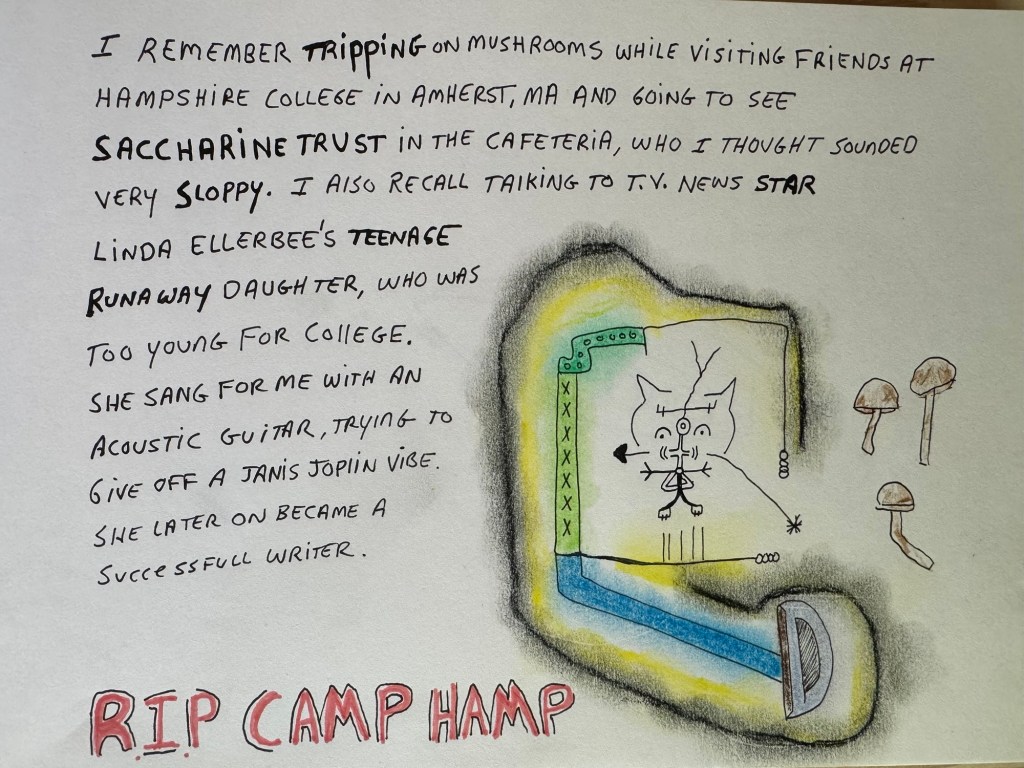 I REMEMBER TRIPPING ON MUSHROOMS WHILE VISITING FRIENDS AT
HAMPSHIRE COLLEGE IN AMHERST, MA AND GOING TO SEE
SACCHARINE TRUST IN THE CAFETERIA, WHO I THOUGHT SOUNDED
VERY SLOPPY. I ALSO RECALL TALKING TO T.V. NEWS STAR
LINDA ELLERBEE'S TEENAGE
RUNAWAY DAUGHTER, WHO WAS
TOO YOUNG FOR COLLEGE.
SHE SANG FOR ME WITH AN
ACOUSTIC GUITAR, TRYING TO
GIVE OFF A JANIS JOPLIN VIBE.
SHE LATER ON BECAME A
SUCCESSFULL WRITER.
R.I.P CAMP HAMP